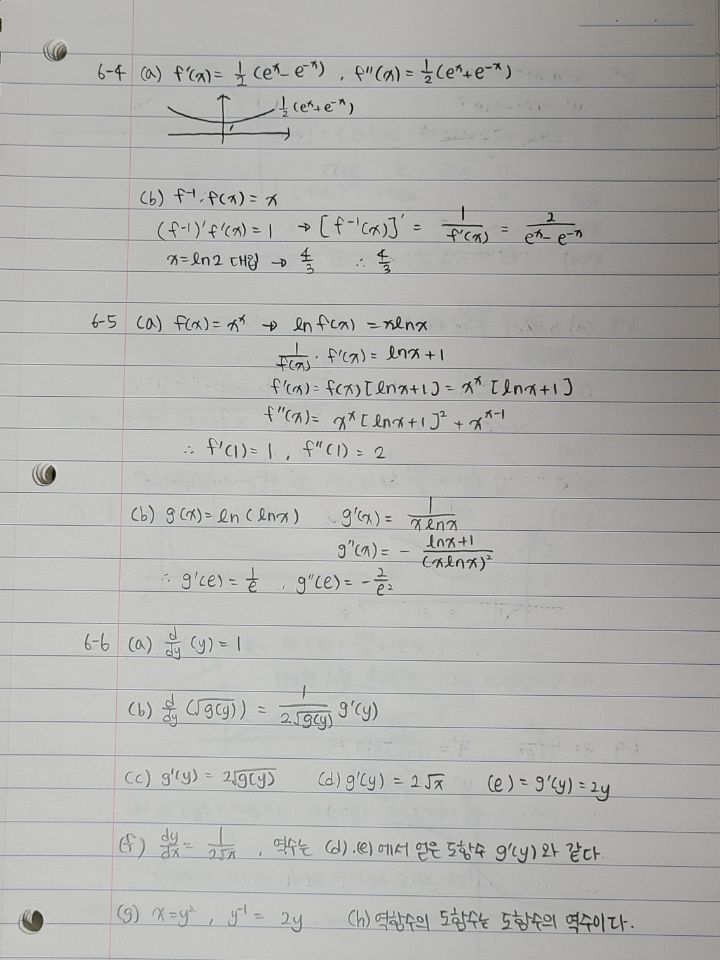 6-4 (a) f'(x) = 1/2 (eˣ - e⁻ˣ) , f''(x) = 1/2 (eˣ + e⁻ˣ)
1/2 (eˣ + e⁻ˣ)
1
(b) f⁻¹ · f(x) = x
(f⁻¹)' f'(x) = 1 → [f⁻¹(x)]' = 1/f'(x) = 2/(eˣ - e⁻ˣ)
x = ln2 대입 → 4/3 ∴ 4/3
6-5 (a) f(x) = xˣ → ln f(x) = xlnx
1/f(x) · f'(x) = lnx + 1
f'(x) = f(x) [lnx + 1] = xˣ [lnx + 1]
f''(x) = xˣ [lnx + 1]² + xˣ⁻¹
∴ f'(1) = 1 , f''(1) = 2
(b) g(x) = ln(lnx) g'(x) = 1/(xlnx)
g''(x) = - (lnx + 1)/(xlnx)²
∴ g'(e) = 1/e , g''(e) = - 2/e²
6-6 (a) d/dy (y) = 1
(b) d/dy (√g(y)) = 1/(2√g(y)) g'(y)
(c) g'(y) = 2√g(y) (d) g'(y) = 2√x (e) = g'(y) = 2y
(f) dy/dx = 1/(2√x) , 역수는 (d).(e)에서 얻은 도함수 g'(y)와 같다.
(g) x = y² , y⁻¹ = 2y (h) 역함수의 도함수는 도함수의 역수이다.